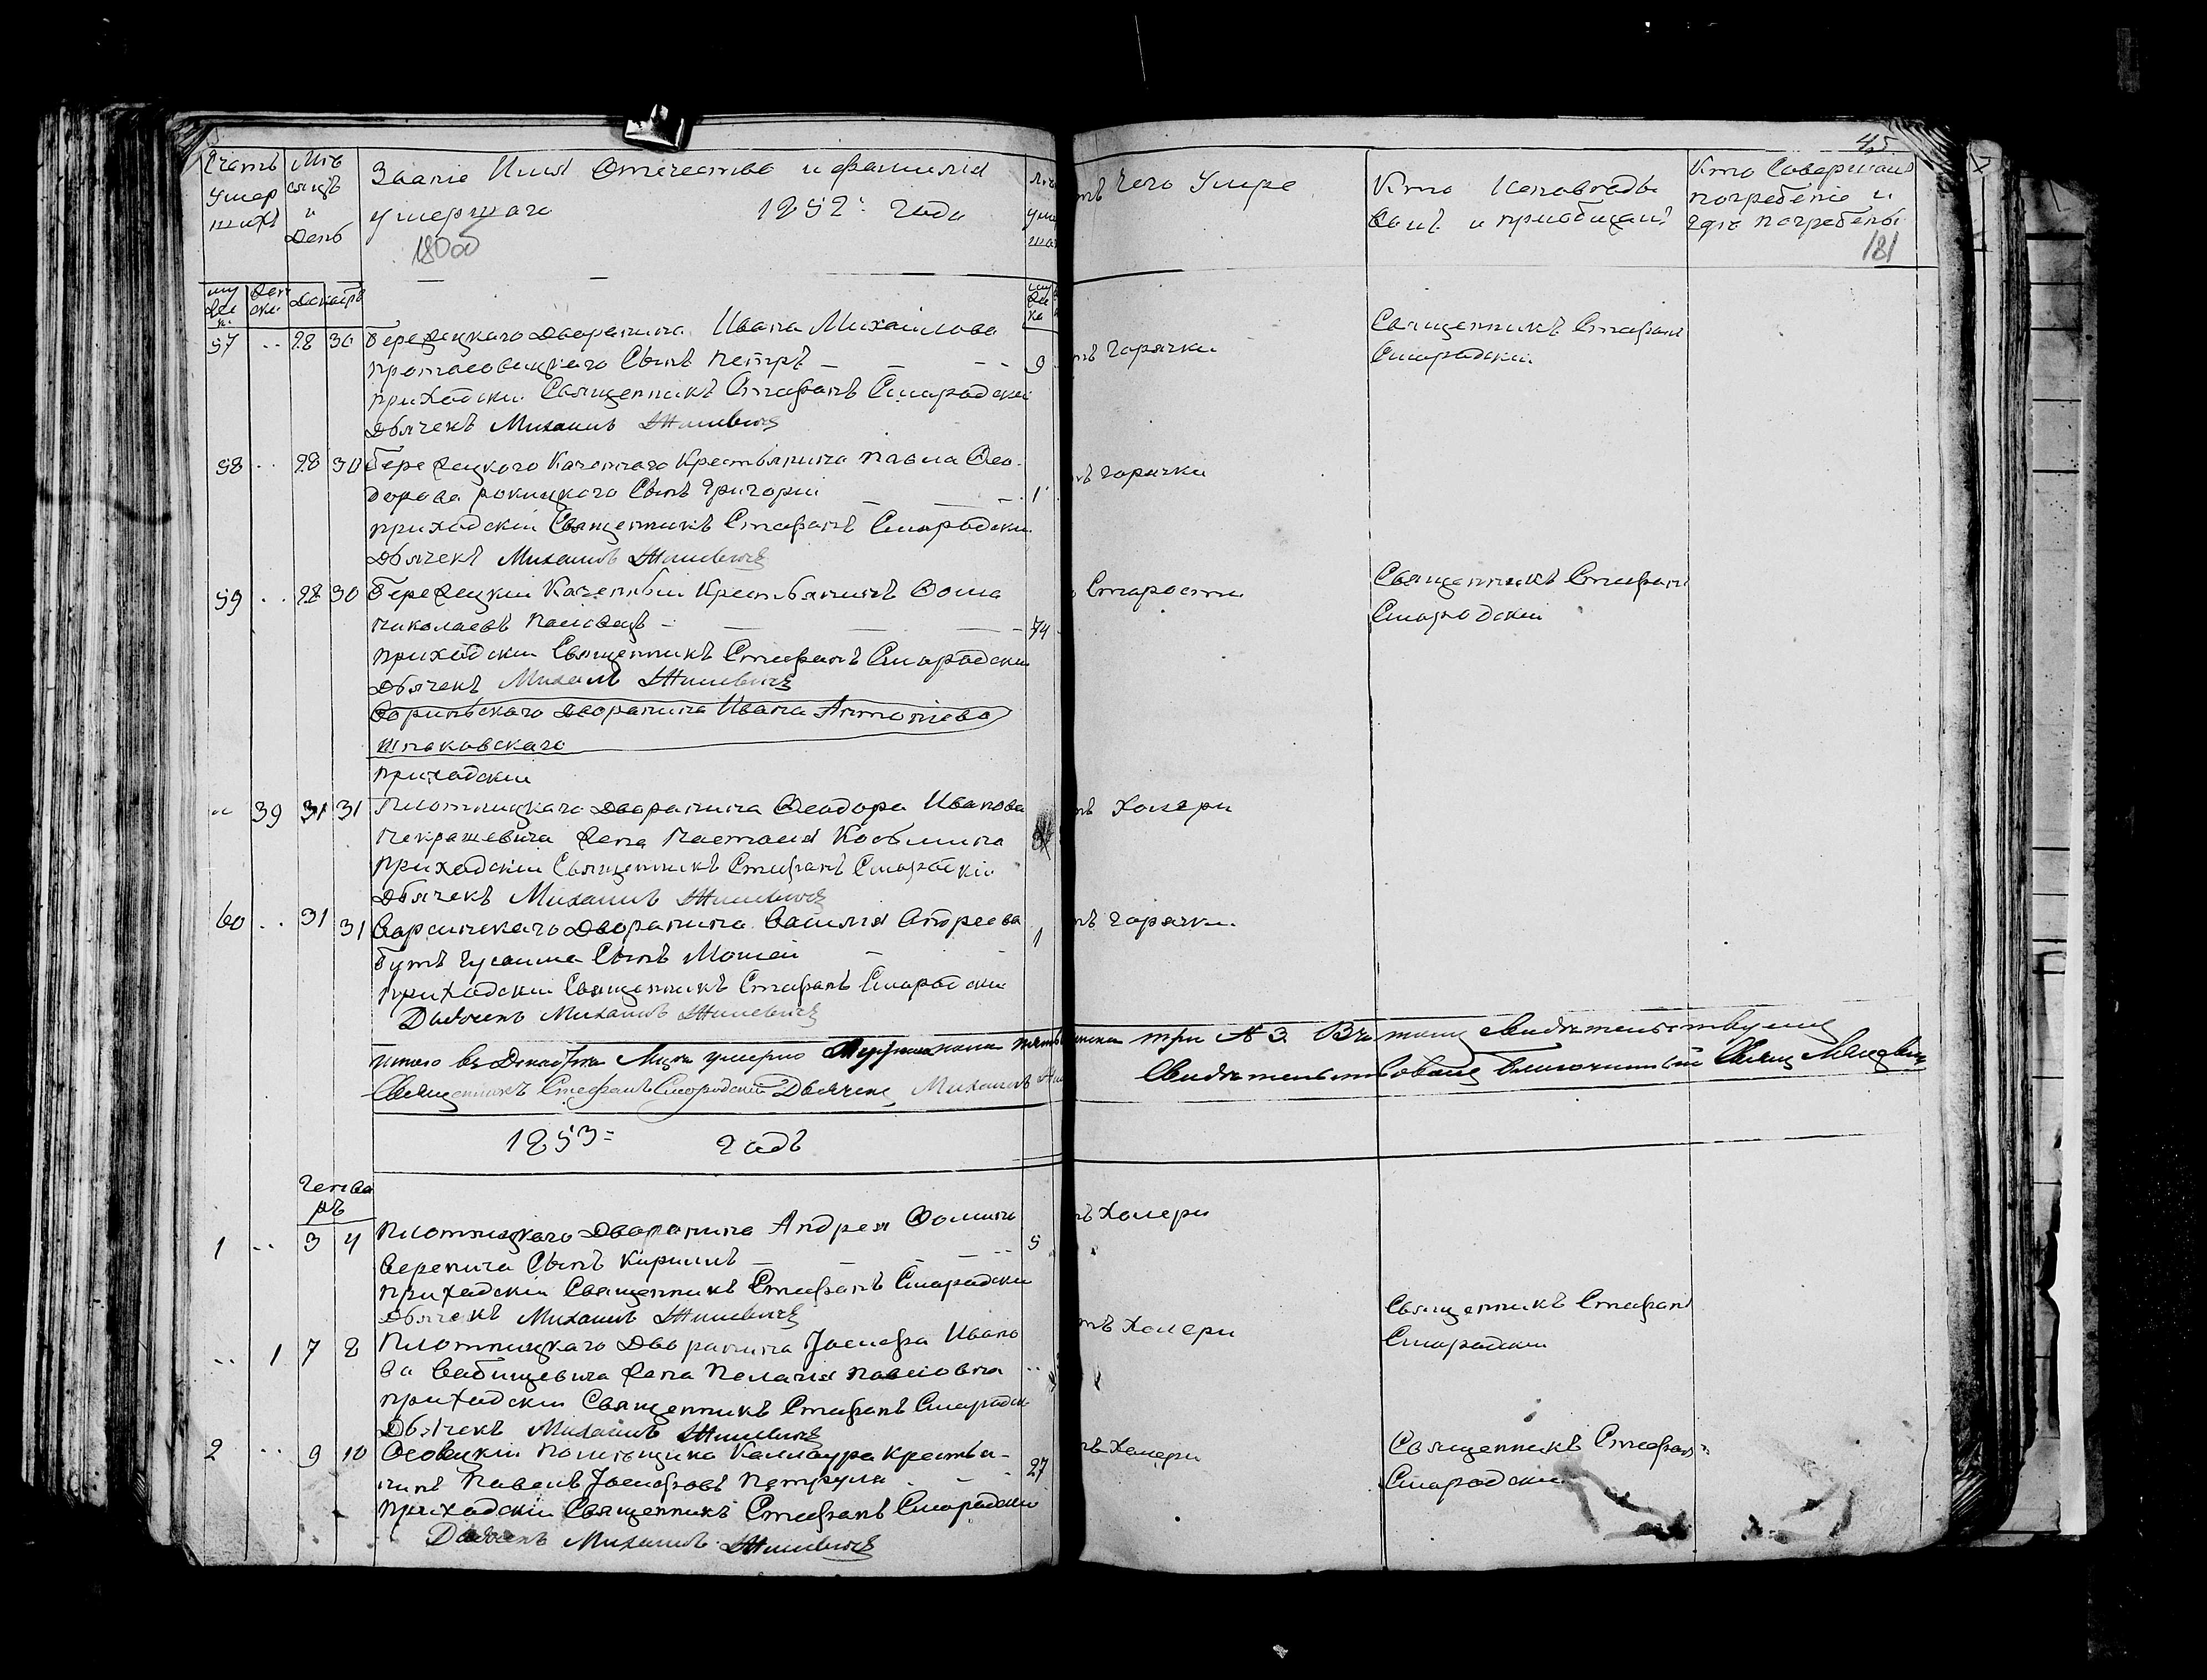 Счетъ умер шихъ
Мѣсяцъ и День
Званіе Имя Отечество и фамилія
умершаго 1852: года
1800
Лѣ
уме
ша
Чего Умре
Кто Исповѣды
валъ и приобщалъ
Кто Совершалъ
погребеніе и
гдѣ погребены
45
181
му
жеска
Декабрь
57 .. 28 30 Бережецкаго дворянина Ивана Михайлова
Протасовицкаго Сынъ Петръ — 9
приходскій Священникъ Стефанъ Смародскій
Дьячекъ Михаилъ
тъ Горячки
Священникъ Стефанъ
Смародскій
58 .. 28 30 Бережецкого Казеннаго Крестьянина Павла Ѳео-
дорова рокицкаго Сынъ Григорій — 1
приходскій Священникъ Стефанъ Смародскій
Дьячекъ Михаилъ
тъ горячки
59 .. 28 30 Бережецкій Казенный Крестьянинъ Ѳома
Николаевъ — 74
приходскій Священникъ Стефанъ Смародскій
Дьячекъ Михаилъ
Старости
Священникъ Стефанъ
Смародскій
дворянина Ивана Антоніева
Шпаковскаго
приходскій
.. 39 31 31 Плотницкаго дворянина Ѳеодора Иванова
Некрашевича жена Настасія Косьмина
приходскій Священникъ Стефанъ Смародскій
Дьячекъ Михаилъ
тъ Холери
60 .. 31 31 дворянина Василія Андреева
Бутъ Гусаима Сынъ Мойсей 1
приходскій Священникъ Стефанъ Смародскій
Дьячекъ Михаилъ
тъ горячки
Итого въ Декабрѣ Мцѣ умерло три № 3. Въ томъ свидѣтельствуемъ
Священникъ Стефанъ Смородскій Дьячекъ Михаилъ Свидѣтельствовалъ благочинный Священ
1853= годъ
Генва
рь
1 .. 3 4 Плотницкаго дворянина Андрея Ѳомина
Веренича Сынъ Кириллъ — 5
приходскій Священникъ Стефанъ Смародскій
Дьячекъ Михаилъ
тъ Холери
.. 1 7 8 Плотницкаго дворянина Іосифа Ивано
ва жена Пелагія Павловна
приходскій Священникъ Стефанъ Смародск
Дьячекъ Михаилъ
тъ Холери
Священникъ Стефанъ
Смародскій
2 .. 9 10 Осовецкій Помѣщика Каллаура крестья-
нинъ Павелъ Іосифовъ 27
приходскій Священникъ Стефанъ Смародскій
Дьячекъ Михаилъ
тъ Холери
Священникъ Стефанъ
Смародскій